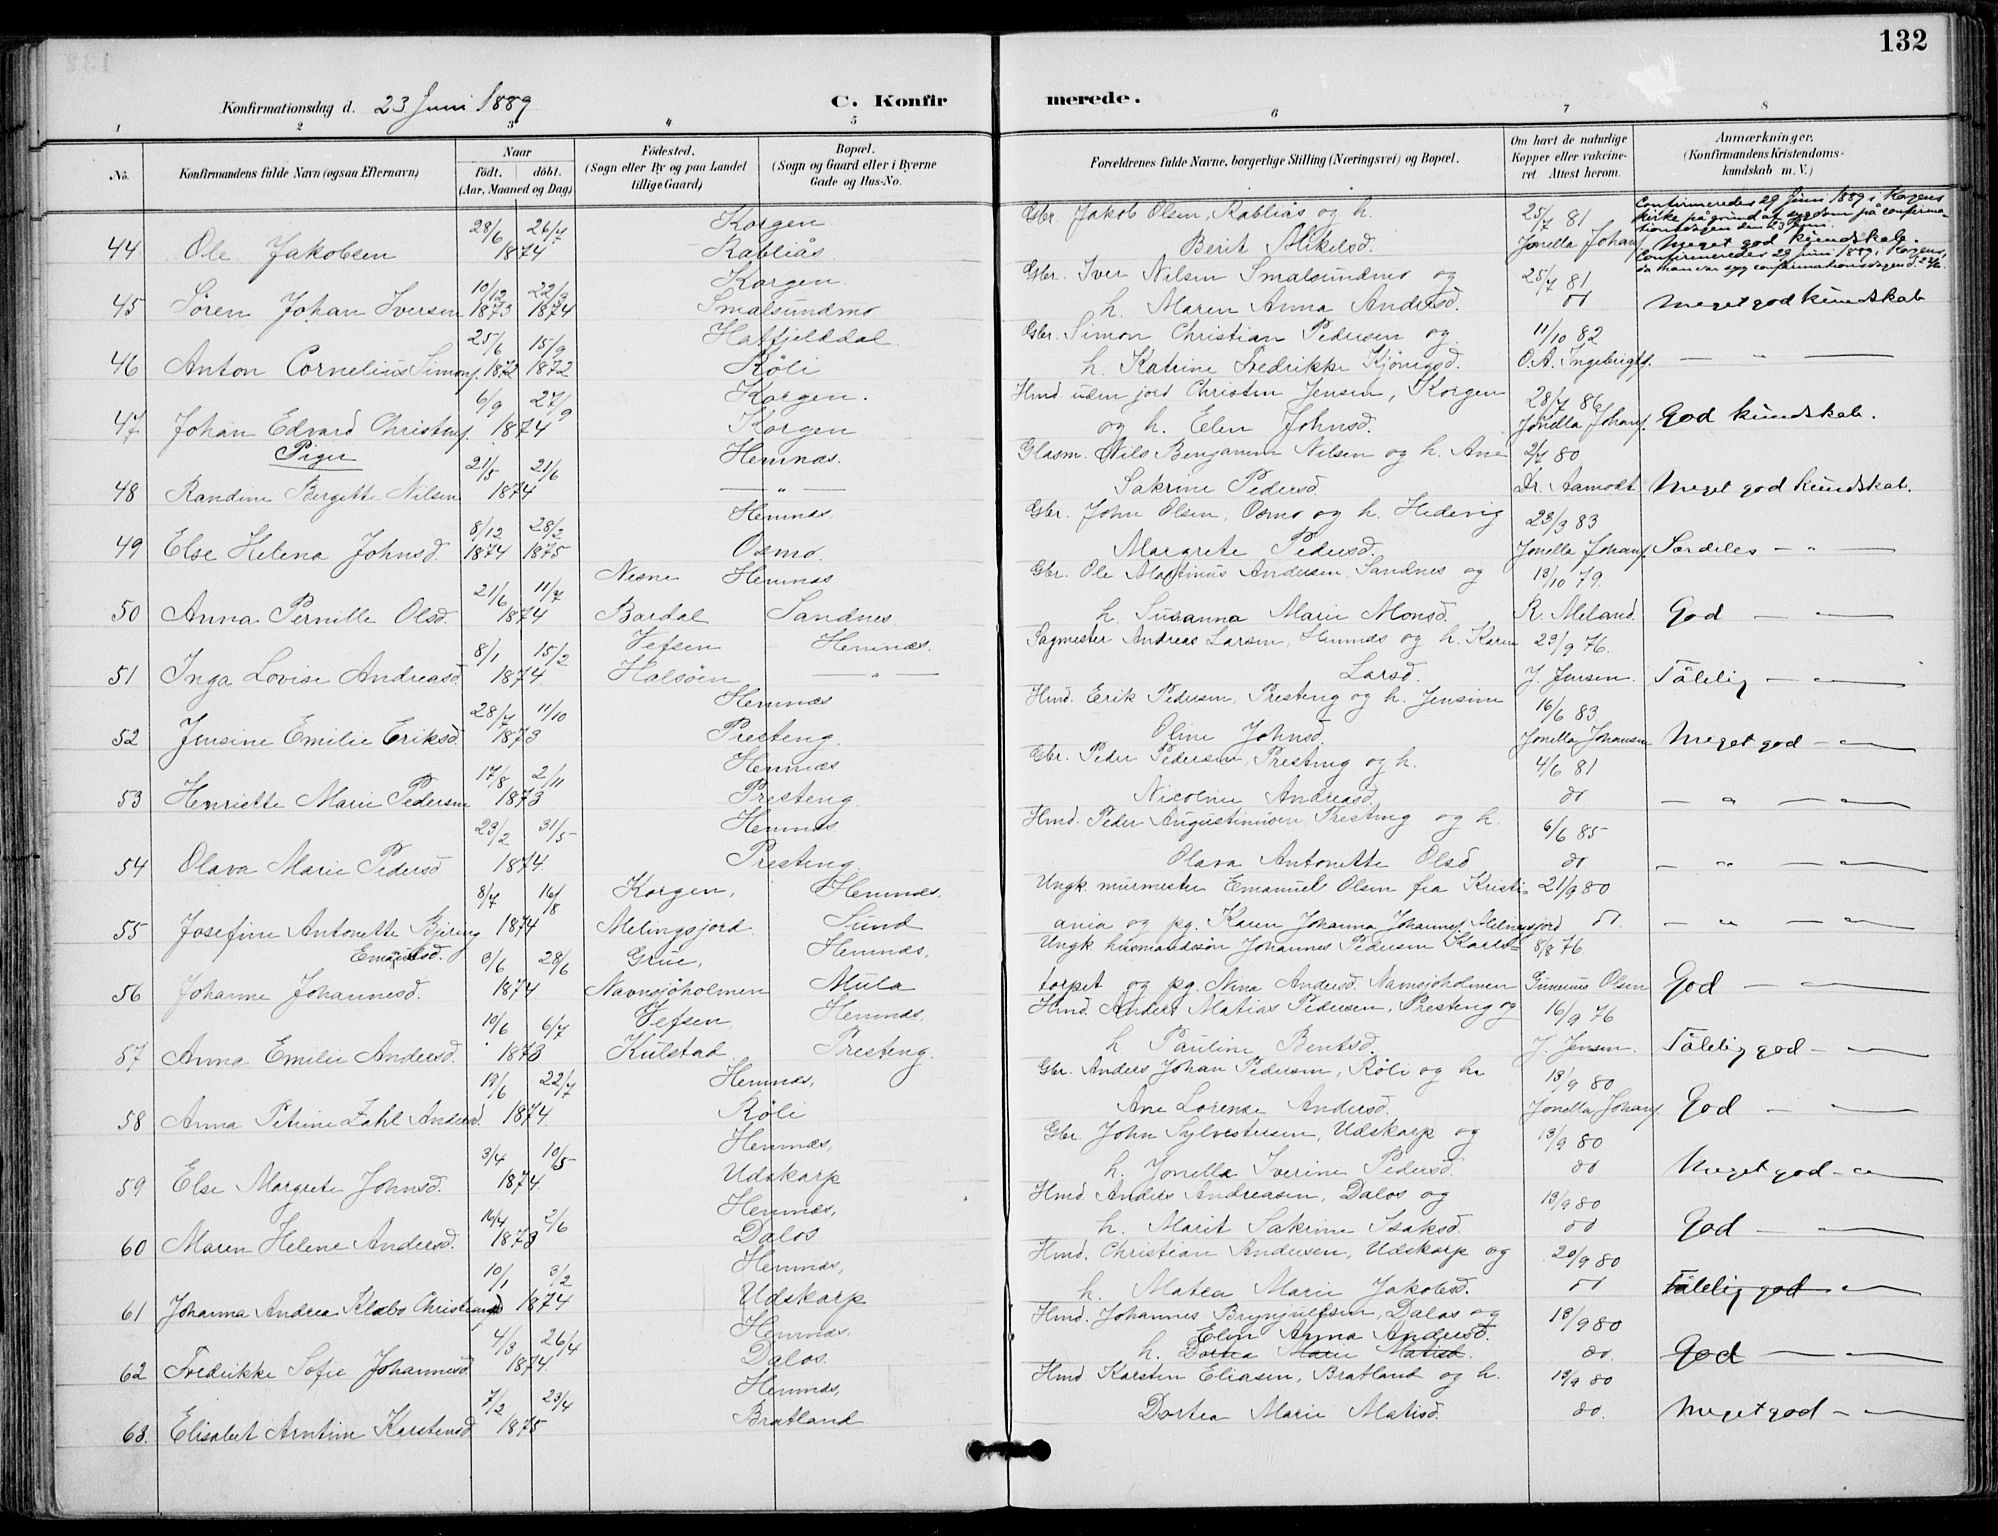 132
Konfirmationsdag d. 23 Juni 1889 C. Konfirmerede.
1 2 3 4 5 6 7 8
No.
Konfirmandens fulde Navn (ogsaa Efternavn)
Naar
födt. döbt.
(Aar, Maaned og Dag)
Födested.
(Sogn eller By og paa Landet
tillige Gaard)
Bopæl.
(Sogn og Gaard eller i Byerne
Gade og Hus-No.
Forældrenes fulde Navne, borgerlige Stilling (Næringsvei) og Bopæl.
Om havt de naturlige
Kopper eller vakcine-
ret. Attest herom.
Anmærkninger.
(Konfirmandens Kristendoms-
kundskab m. V.)
28/6 26/7 Korgen Gbr. Jakob Olsen, Rabliås og h. 25/7 81 Confirmeredes 29 Juni 1889 i Korgens
kirke på grund af sygdom på confirma-
tionsdagen den 23 Juni.
44 Ole Jakobsen 1874 Rabliås Berit Mikelsd. Jonella Johans. Meget god kundskab.
10/12 22/3 Korgen Gbr. Iver Nilsen Smalsundmo og 25/7 81 Confirmeredes 29 Juni 1889 i Korgens,
da han var syg confirmationsdagen d. 23/6.
45 Sören Johan Iversen 1873 1874 Smalsundmo h. Maren Anna Andersd. do Meget god kundskab
25/6 15/9 Hatfjelddal Gbr. Simon Christian Pedersen og 11/10 82
46 Anton Cornelius Simons. 1872 1872 Röli h. Katrine Fredrikke Kjönigsd. O. A. Ingebrigts. — " —
6/9 27/9 Korgen. Hmd. uden jord Christen Jensen, Korgen 28/7 86
47 Johan Edvard Christens. 1874 Korgen og h. Elen Johnsd. Jonella Johans. God kundskab.
Piger
21/5 21/6 Hemnæs. Glasm. Nils Benjamin Nilsen og h. Ane 2/7 80
48 Randine Bergitte Nilsen 1874 — " — Sakrine Pedersd. Dr. Aamodt Meget god kundskab.
8/12 28/2 Hemnæs Gbr. John Olsen, Osmo og h. Hedevig 23/3 83
49 Else Helena Johnsd. 1874 1875 Osmo. Margrete Pedersd. Jonella Johans. Særdeles — " —
21/6 11/7 Nesne Hemnæs Gbr. Ole Martinus Andersen, Sandnes og 13/10 79.
50 Anna Pernille Olsd. 1874 Bardal Sandnes h. Susanna Marie Monsd. R. Meland. God — —
8/1 15/2 Vefsen Hemnæs. Sagmester Andreas Larsen, Hemnæs og h. Karen 23/9 76.
51 Inga Lovise Andreasd. 1874 Halsöen — " — Larsd. J. Jensen. Tålelig — —
28/7 11/10 Hemnæs Hmd. Erik Pedersen, Presteng og h. Jensine 16/6 83
52 Jensine Emilie Eriksd. 1873 Presteng. Oline Johnsd. Jonella Johansen Meget god — —
17/8 2/11 Hemnæs Gbr. Peder Pedersen, Presteng og h. 4/6 81
53 Henriette Marie Pedersen 1873 Presteng Nicoline Andreasd. do — " — —
23/2 31/5 Hemnæs Hmd. Peder Augustinusen, Presteng og h. 6/6 85
54 Olava Marie Pedersd. 1874. Presteng Olava Antonette Olsd. do — " — —
8/7 16/8 Korgen, Hemnæs. Ungk. murmester Emanuel Olsen fra Kristi- 21/9 80
55 Josefine Antonette Bjering 1874 Melingsjord Sund ania og pg. Karen Johanna Johannes. Melingsjord do. — " — —
Emanuelsd.
3/6 28/6 Grue, Hemnæs, Ungk husmandssön Johannes Pedersen Karls- 8/8 76
56 Johanne Johannesd. 1874 Navnsjöholmen Mula torpet og pg. Nina Andersd. Navnsjöholmen Gunerius Olsen God — —
10/6 6/7 Vefsen, Hemnæs, Hmd. Anders Matias Pedersen, Presteng og 16/9 76
57 Anna Emilie Andersd. 1873 Kulstad Presteng. h. Pauline Bentsd. J. Jensen. Tålelig god — —
19/6 22/7 Hemnæs, Gbr. Anders Johan Pedersen, Röli og h. 13/9 80
58 Anna Petrine Zahl Andersd. 1874. Röli Ane Lorense Andersd. Jonella Johans. God — —
3/4 10/5 Hemnæs, Gbr. John Sylvestersen, Udskarp og 13/9 80
59 Else Margrete Johnsd. 1874. Udskarp h. Jonella Iverine Pedersd. do Meget god — —
16/4 2/6 Hemnæs, Hmd Anders Andreasen, Dalos og 13/9 80
60 Maren Helene Andersd. 1873 Dalos h. Marit Sakrine Isaksd. do God — —
10/1 3/2 Hemnæs, Hmd. Christian Andersen, Udskarp og 20/9 80
61 Johanna Andrea Klæbo Christiansd. 1874 Udskarp h. Matea Marie Jakobsd. do Tålelig god — —
4/3 26/4 Hemnæs. Hmd. Johannes Brynjulfsen, Dalos og 13/9 80
Elen Anna Andersd.
62 Fredrikke Sofie Johannesd. 1874 Dalos. h. Dortea Marie Matisd. do. God — —
7/2 23/4 Hemnæs, Hmd Karsten Eliasen, Bratland og h. 13/9 80
63. Elisabet Arntine Karstensd. 1875 Bratland Dortea Marie Matisd. do. Meget god — —